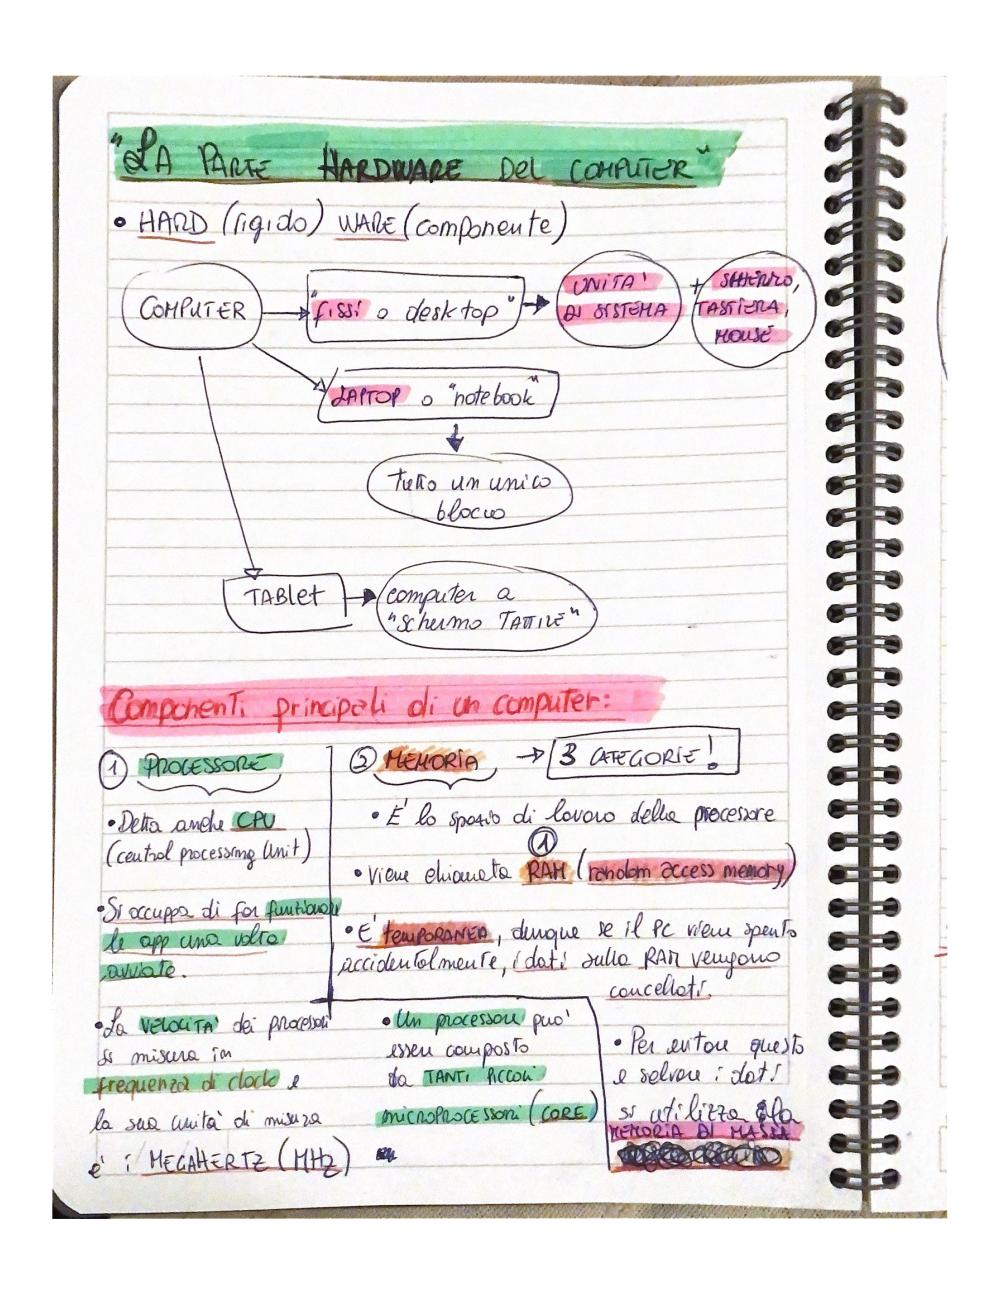 "LA PARTE HARDWARE DEL COMPUTER"
• HARD (rigido) WARE (componente)
COMPUTER
"fissi o desktop"
UNITA'
DI SISTEMA
+ SCHERMO,
TASTIERA,
MOUSE
LAPTOP o "notebook"
Tutto un unico
blocco
TABLET
computer a
"schermo TATTILE"
Componenti principali di un computer:
1 PROCESSORE
• Detta anche CPU
(central processing Unit)
• Si occupa di far funzionare
le app una volta
avviate.
• La VELOCITA' dei processori
si misura in
frequenza di clock e
la sua unità di misura
è i MEGAHERTZ (MHz)
• Un processore puo'
essere composto
da TANTI PICCOLI
MICROPROCESSORI (CORE)
2 MEMORIA → 3 CATEGORIE!
• E' lo spazio di lavoro della processore
1
• Viene chiamata RAM (random access memory)
• E' TEMPORANEA, dunque se il PC viene spento
accidentalmente, i dati sulla RAM vengono
cancellati.
• Per evitare questo
e salvare i dati
si utilizza la
MEMORIA DI MASSA